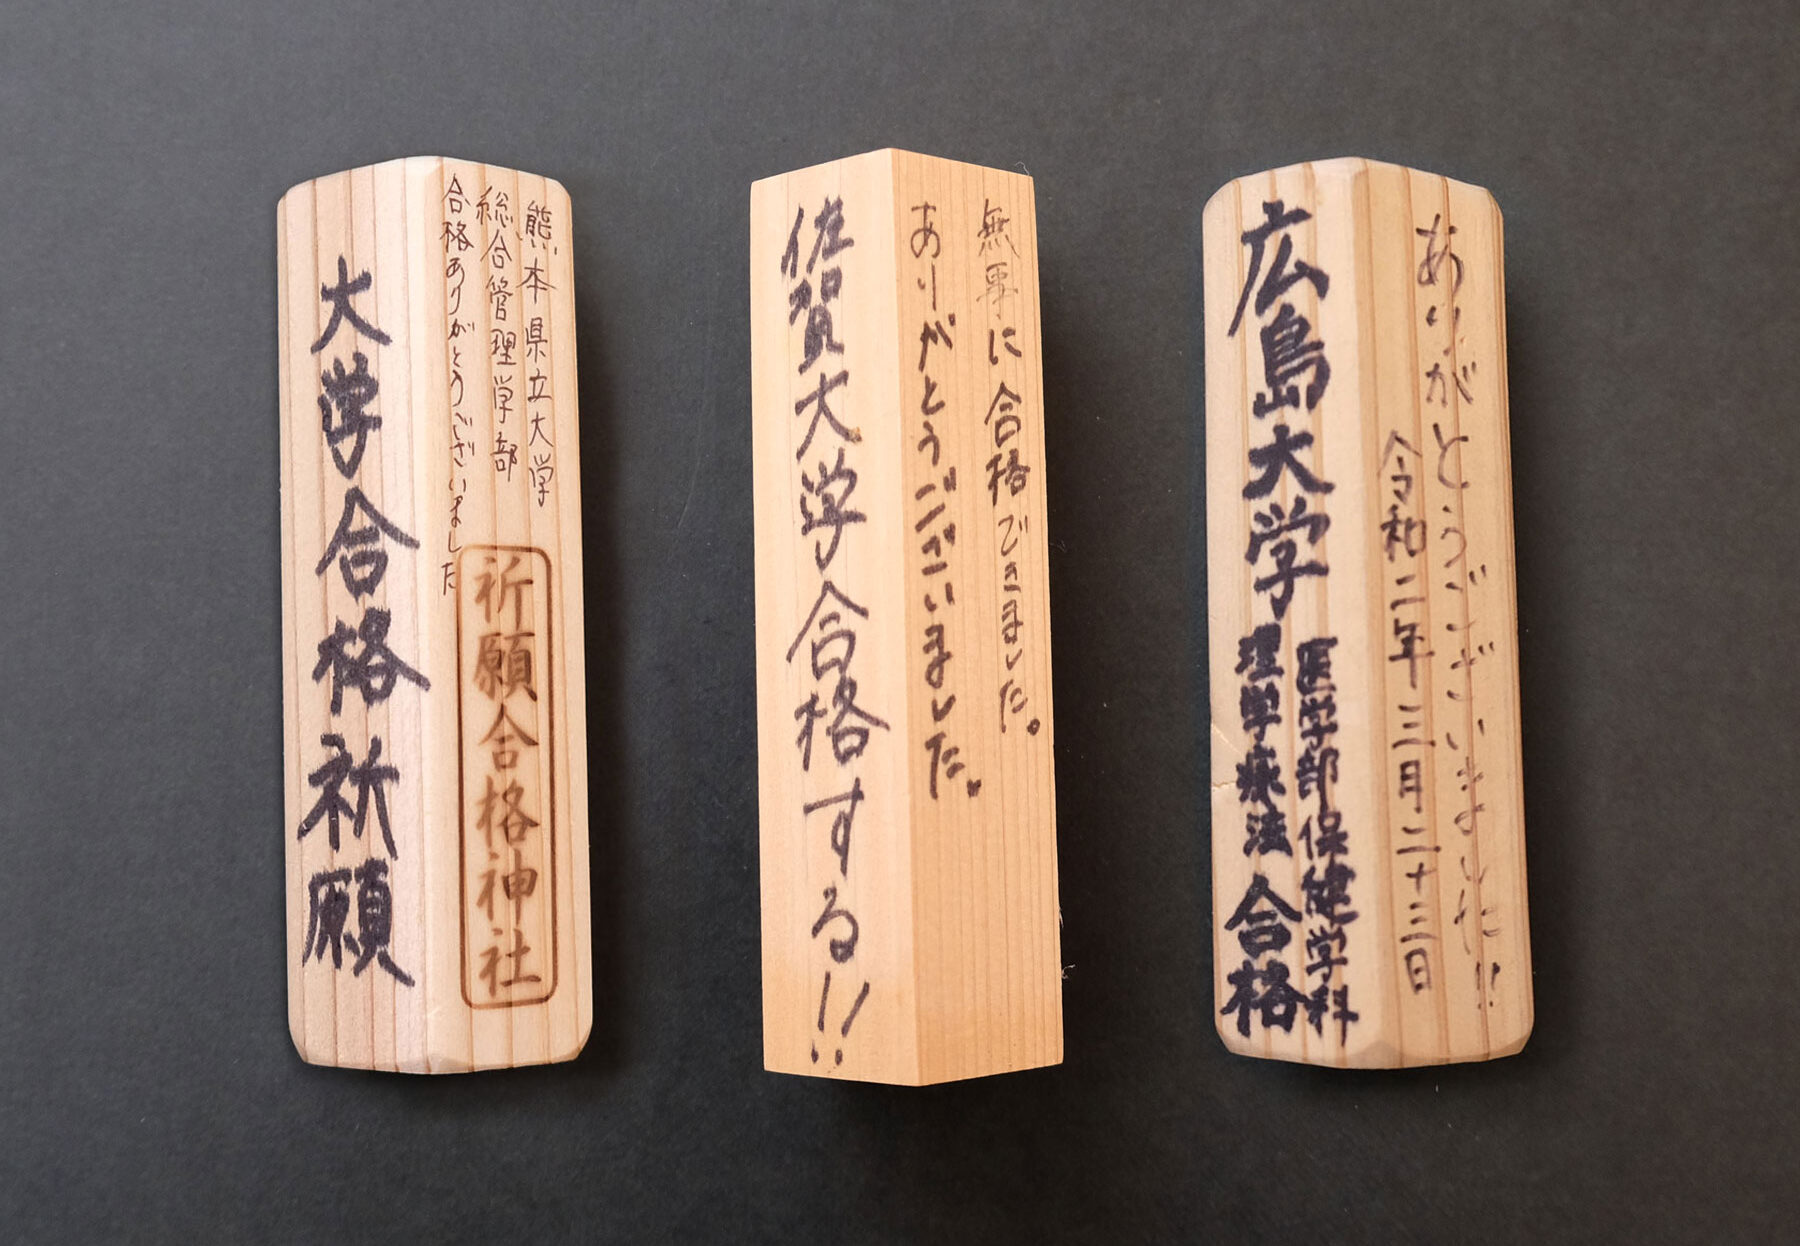 大学合格祈願
熊本県立大学
総合管理学部
合格ありがとうございました
祈願合格神社
佐賀大学合格する!!
無事に合格できました。
ありがとうございました。
広島大学
医学部保健学科
理学療法
合格
ありがとうございました!!
令和二年三月二十三日